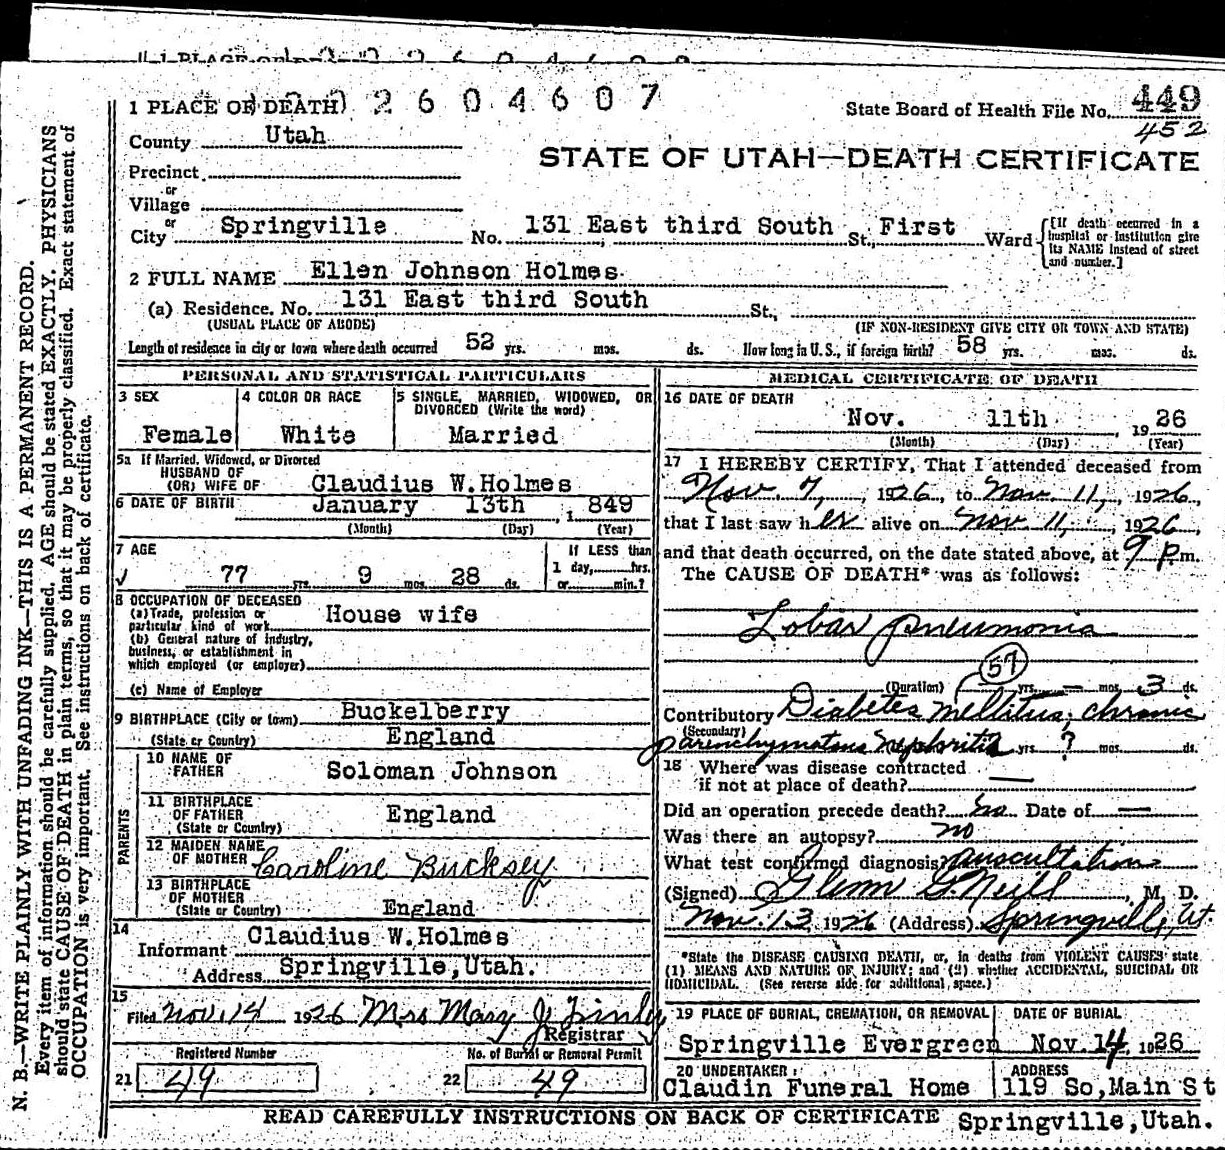 1 PLACE OF DEATH 2604607
State Board of Health File No. 449
452
County Utah
STATE OF UTAH—DEATH CERTIFICATE
Precinct
or
Village
or
City Springville No. 131 East third South St., First Ward
[If death occurred in a hospital or institution give its NAME instead of street and number.]
2 FULL NAME Ellen Johnson Holmes
(a) Residence. No. 131 East third South St.,
(USUAL PLACE OF ABODE) (IF NON-RESIDENT GIVE CITY OR TOWN AND STATE)
Length of residence in city or town where death occurred 52 yrs. mos. ds. How long in U. S., if foreign birth? 58 yrs. mos. ds.
PERSONAL AND STATISTICAL PARTICULARS
3 SEX
Female
4 COLOR OR RACE
White
5 SINGLE, MARRIED, WIDOWED, OR DIVORCED (Write the word)
Married
5a If Married, Widowed, or Divorced
HUSBAND OF
(OR) WIFE OF Claudius W.Holmes
6 DATE OF BIRTH January 13th, 1 849
(Month) (Day) (Year)
7 AGE
77 yrs. 9 mos. 28 ds.
If LESS than
1 day,......hrs.
or......min.?
8 OCCUPATION OF DECEASED
(a) Trade, profession or
particular kind of work House wife
(b) General nature of industry,
business, or establishment in
which employed (or employer)
(c) Name of Employer
9 BIRTHPLACE (City or town) Buckelberry
(State or Country) England
PARENTS
10 NAME OF
FATHER Soloman Johnson
11 BIRTHPLACE
OF FATHER England
(State or Country)
12 MAIDEN NAME
OF MOTHER Caroline Bucksey
13 BIRTHPLACE
OF MOTHER
(State or Country) England
14
Informant Claudius W.Holmes
Address Springville,Utah.
15
Filed Nov. 14 1926 Mrs Mary J. Finley
Registrar
Registered Number No. of Burial or Removal Permit
21 49 22 49
MEDICAL CERTIFICATE OF DEATH
16 DATE OF DEATH
Nov. 11th, 19 26
(Month) (Day) (Year)
17 I HEREBY CERTIFY, That I attended deceased from
Nov. 7, 1926, to Nov. 11, 1926,
that I last saw her alive on Nov 11, 1926,
and that death occurred, on the date stated above, at 9 P.m.
The CAUSE OF DEATH* was as follows:
Lobar pneumonia
57
(Duration) yrs. — mos. 3 ds.
Contributory Diabetes mellitus; chronic
(Secondary)
parenchymatous nephritis yrs. ? mos. ds.
18 Where was disease contracted
if not at place of death? —
Did an operation precede death? no Date of —
Was there an autopsy? no
What test confirmed diagnosis? auscultation
(Signed) Glenn G. Neill, M. D.
Nov. 13 1926 (Address) Springville, Ut.
*State the DISEASE CAUSING DEATH, or, in deaths from VIOLENT CAUSES state
(1) MEANS AND NATURE OF INJURY; and (2) whether ACCIDENTAL, SUICIDAL OR
HOMICIDAL. (See reverse side for additional space.)
19 PLACE OF BURIAL, CREMATION, OR REMOVAL
Springville Evergreen
DATE OF BURIAL
Nov. 14, 1926
20 UNDERTAKER
Claudin Funeral Home
ADDRESS
119 So,Main St
Springville,Utah.
READ CAREFULLY INSTRUCTIONS ON BACK OF CERTIFICATE
N. B.—WRITE PLAINLY WITH UNFADING INK—THIS IS A PERMANENT RECORD.
Every item of information should be carefully supplied. AGE should be stated EXACTLY. PHYSICIANS
should state CAUSE OF DEATH in plain terms, so that it may be properly classified. Exact statement of
OCCUPATION is very important. See instructions on back of certificate.